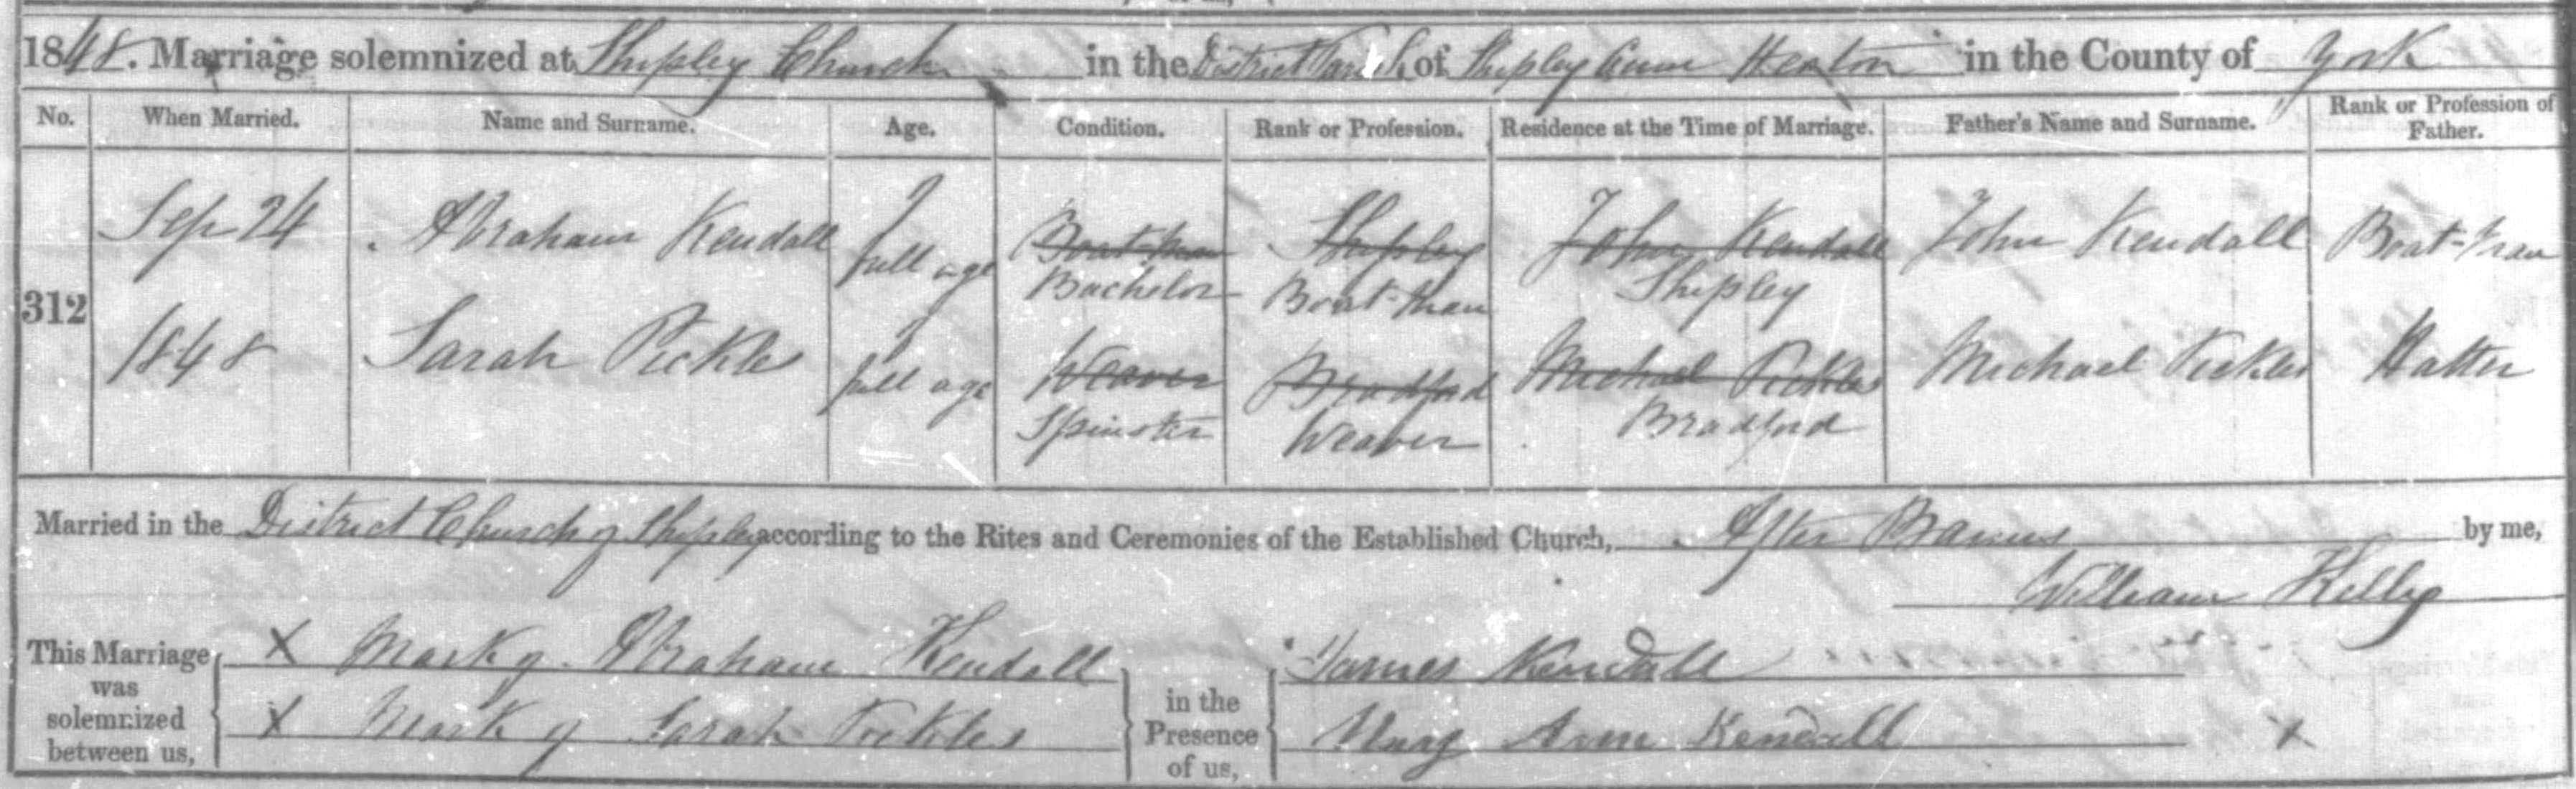 1848. Marriage solemnized at Shipley Church in the District Parish of Shipley Cum Heaton in the County of York
No. When Married. Name and Surname. Age. Condition. Rank or Profession. Residence at the Time of Marriage. Father's Name and Surname. Rank or Profession of Father.
Sep 24 Abraham Kendall full age Boat-man Shipley John Kendall John Kendall Boat-man
Bachelor Boat-man Shipley
312
1848 Sarah Pickles full age Weaver Bradford Michael Pickles Michael Pickles Hatter
Spinster Weaver Bradford
Married in the District Church of Shipley according to the Rites and Ceremonies of the Established Church, After Banns by me,
William Kelly
This Marriage was solemnized between us, X Mark of Abraham Kendall in the Presence of us, James Kendall
X Mark of Sarah Pickles Mary Ann Kendall X